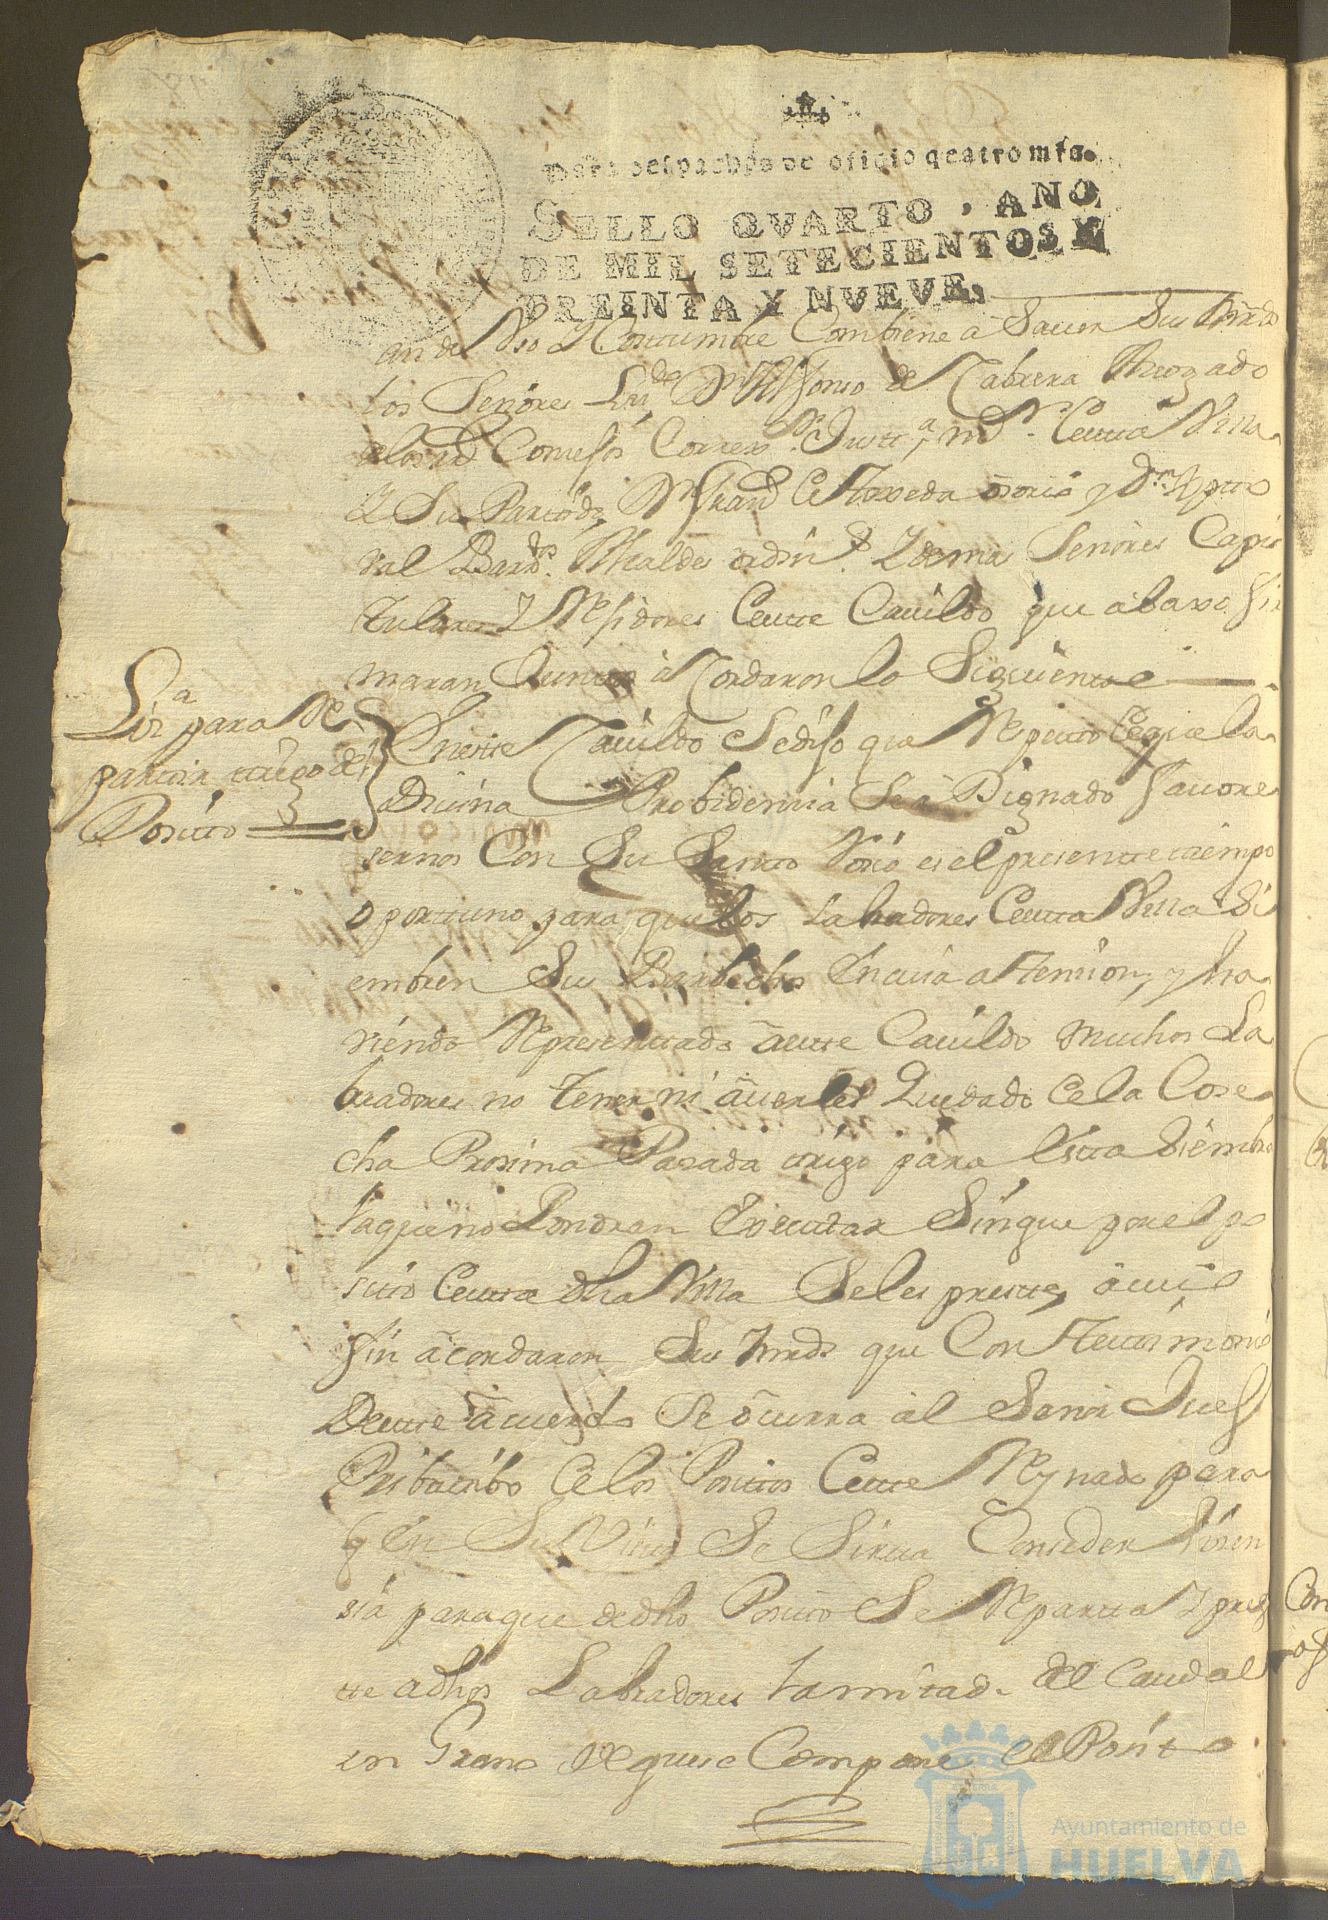 Para despachos de oficio qcatro mrs.
SELLO QVARTO, AÑO
DE MIL SETECIENTOS Y
TREINTA Y NVEVE,
an de Vso y Costumbre Combiene a Sauer Sus mrds
los Señores Lizdo Dn Alfonso de Cabrera Auogado
delos Rs Consejos Correxor Justa mr Cesta Villa
y Su Partdo, Dn Frand Osorio y Dn
Alcaldes ordins y demas Señores Capi
tulares y Rexidores Ceste Cauildo que abaxo fir
maran Juntos acordaron lo Siguiente
Liza para Re
partir trigo del
Posito
Eneste Cauildo Sedijo que Respecto Ceque la
Diuina Probidencia Se a Dignado fauore
sernos Con Su Santo Rosio es el presente tiempo
oportuno para que los Labradores Cesta Villa Si
embren Sus Barbechos En cuia atension, y ha
viendo Representado a este Cauildo muchos La
bradores no tener ni auerles Quedado Ce la Cose
cha Prosima Pasada trigo para Esta Siembra
laque no Pondran Executar Sinque por el po
sito Cesta dha Villa Seles preste, a cuio
fin acordaron Sus mrds que Con testimonio
Deeste acuerdo Se ocurra al Senor Jues
Pribatibo Ce los Positos Ceste Reynado para
q En Su Vista Se Sirua Conseder Lisen
sia para que dedho Posito Se Reparta y pres
te adhos Labradores la mitad del Caudal
en Grano Deque se Compone el Posito
Ayuntamiento de
HUELVA